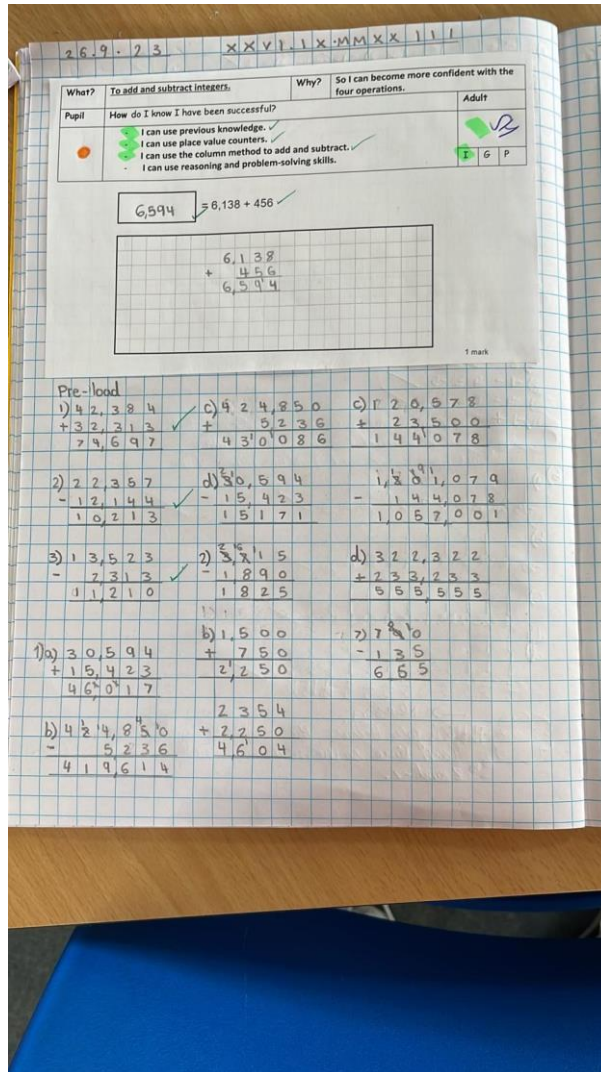 26.9.23 XXVI.IX.MMXXIII
What? To add and subtract integers. Why? So I can become more confident with the four operations.
Pupil How do I know I have been successful? Adult
I can use previous knowledge.
I can use place value counters.
I can use the column method to add and subtract.
I can use reasoning and problem-solving skills.
I G P
6,594 = 6,138 + 456
6,138
+ 456
6,594
1 mark
Pre-load
1) 42,384
+32,313
74,697
2) 22,357
-12,144
10,213
3) 13,523
- 2,313
11,210
1)a) 30,594
+15,423
46,017
b) 424,850
- 5236
419,614
c) 424,850
+ 5236
430086
d) 30,594
- 15,423
15171
2)
- 1890
1825
b) 1,500
+ 750
2,250
2354
+ 2250
4604
c) 120,578
+ 23,500
144078
- 144,078
1,057,001
d) 322,322
+233,233
555,555
- 135
665